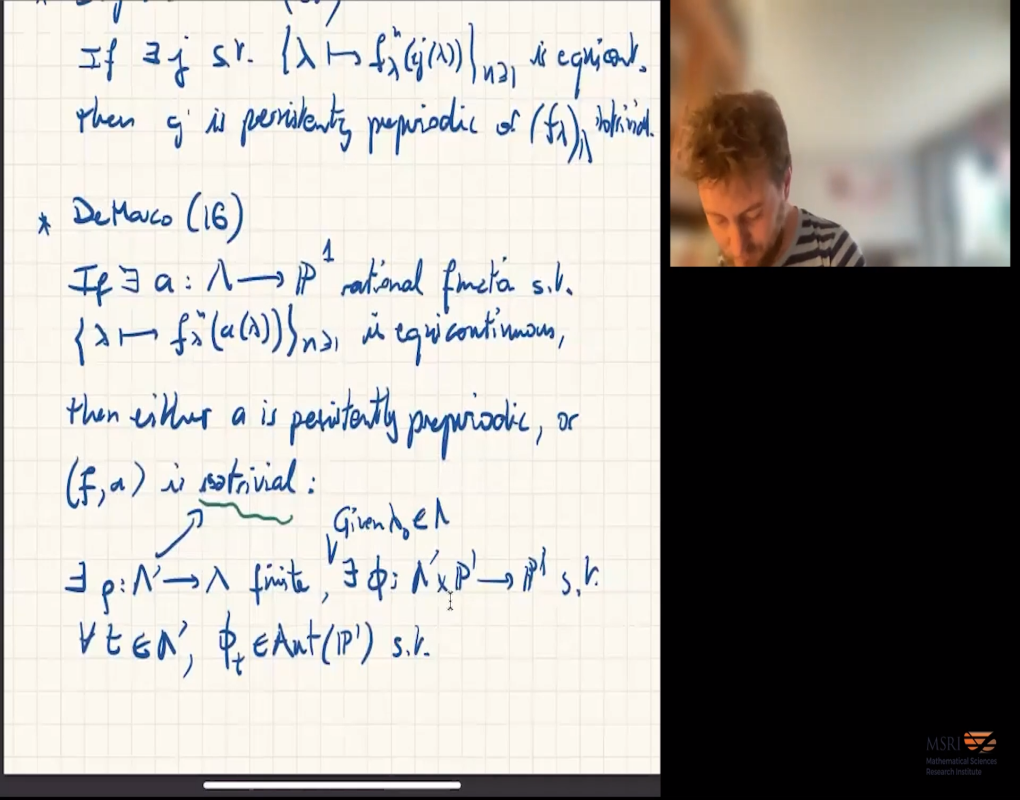 If ∃ j s.t. {λ ↦ f_λ^n(cj(λ))}_{n≥1} is equicont.
then cj is persistently preperiodic or (f_λ)_λ isotrivial.
* DeMarco (16)
If ∃ a : Λ → ℙ^1 rational function s.t.
{λ ↦ f_λ^n(a(λ))}_{n≥1} is equicontinuous,
then either a is persistently preperiodic, or
(f, a) is isotrivial :
Given λ_0 ∈ Λ
∃ ρ : Λ' → λ finite, ∃ ϕ : Λ' × ℙ^1 → ℙ^1 s.t.
∀ t ∈ Λ', ϕ_t ∈ Aut(ℙ^1) s.t.
MSRI
Mathematical Sciences
Research Institute